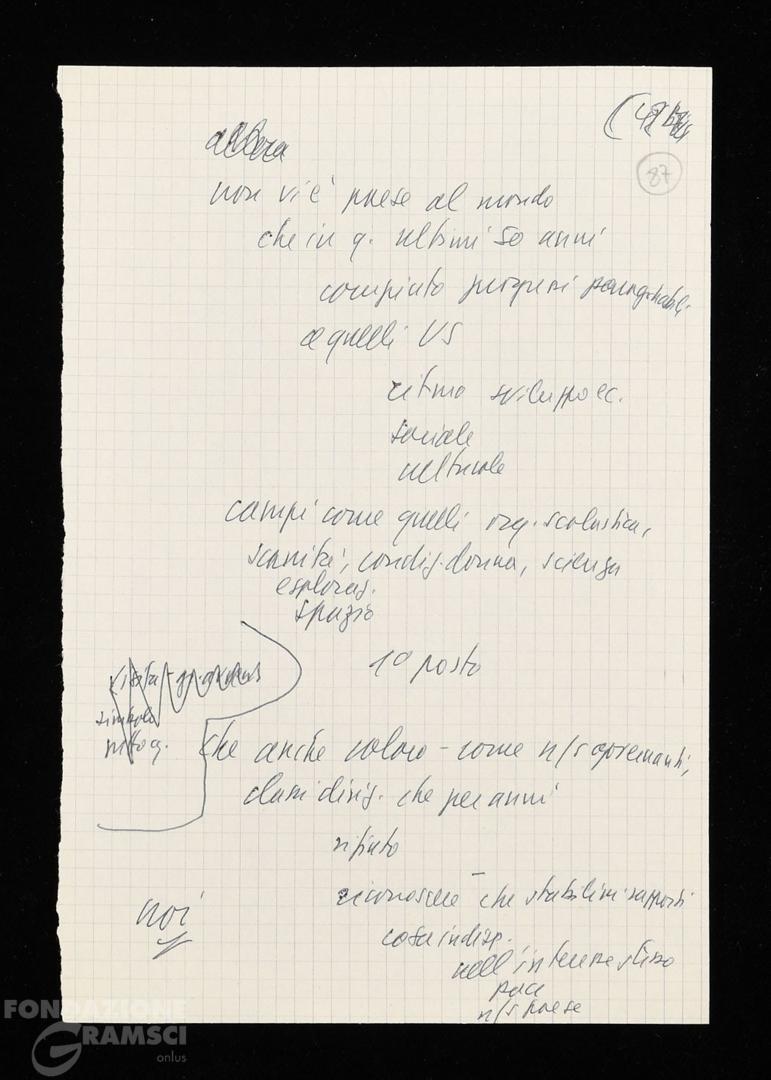 87
allora
non vi è paese al mondo
che in q. ultimi 50 anni
compiuto progressi paragonabili
a quelli US
ritmo sviluppo ec.
sociale
culturale
campi come quelli org. scolastica,
sanità, condiz. donna, scienza
esploraz.
spazio
1° posto
simbolo
che anche coloro - come n/s governanti,
classi dirig. che per anni
rifiuto
riconoscere - che stabilire rapporti
cosa indisp.
nell'interesse stesso
pace
n/s paese
noi
FONDAZIONE
GRAMSCI
onlus